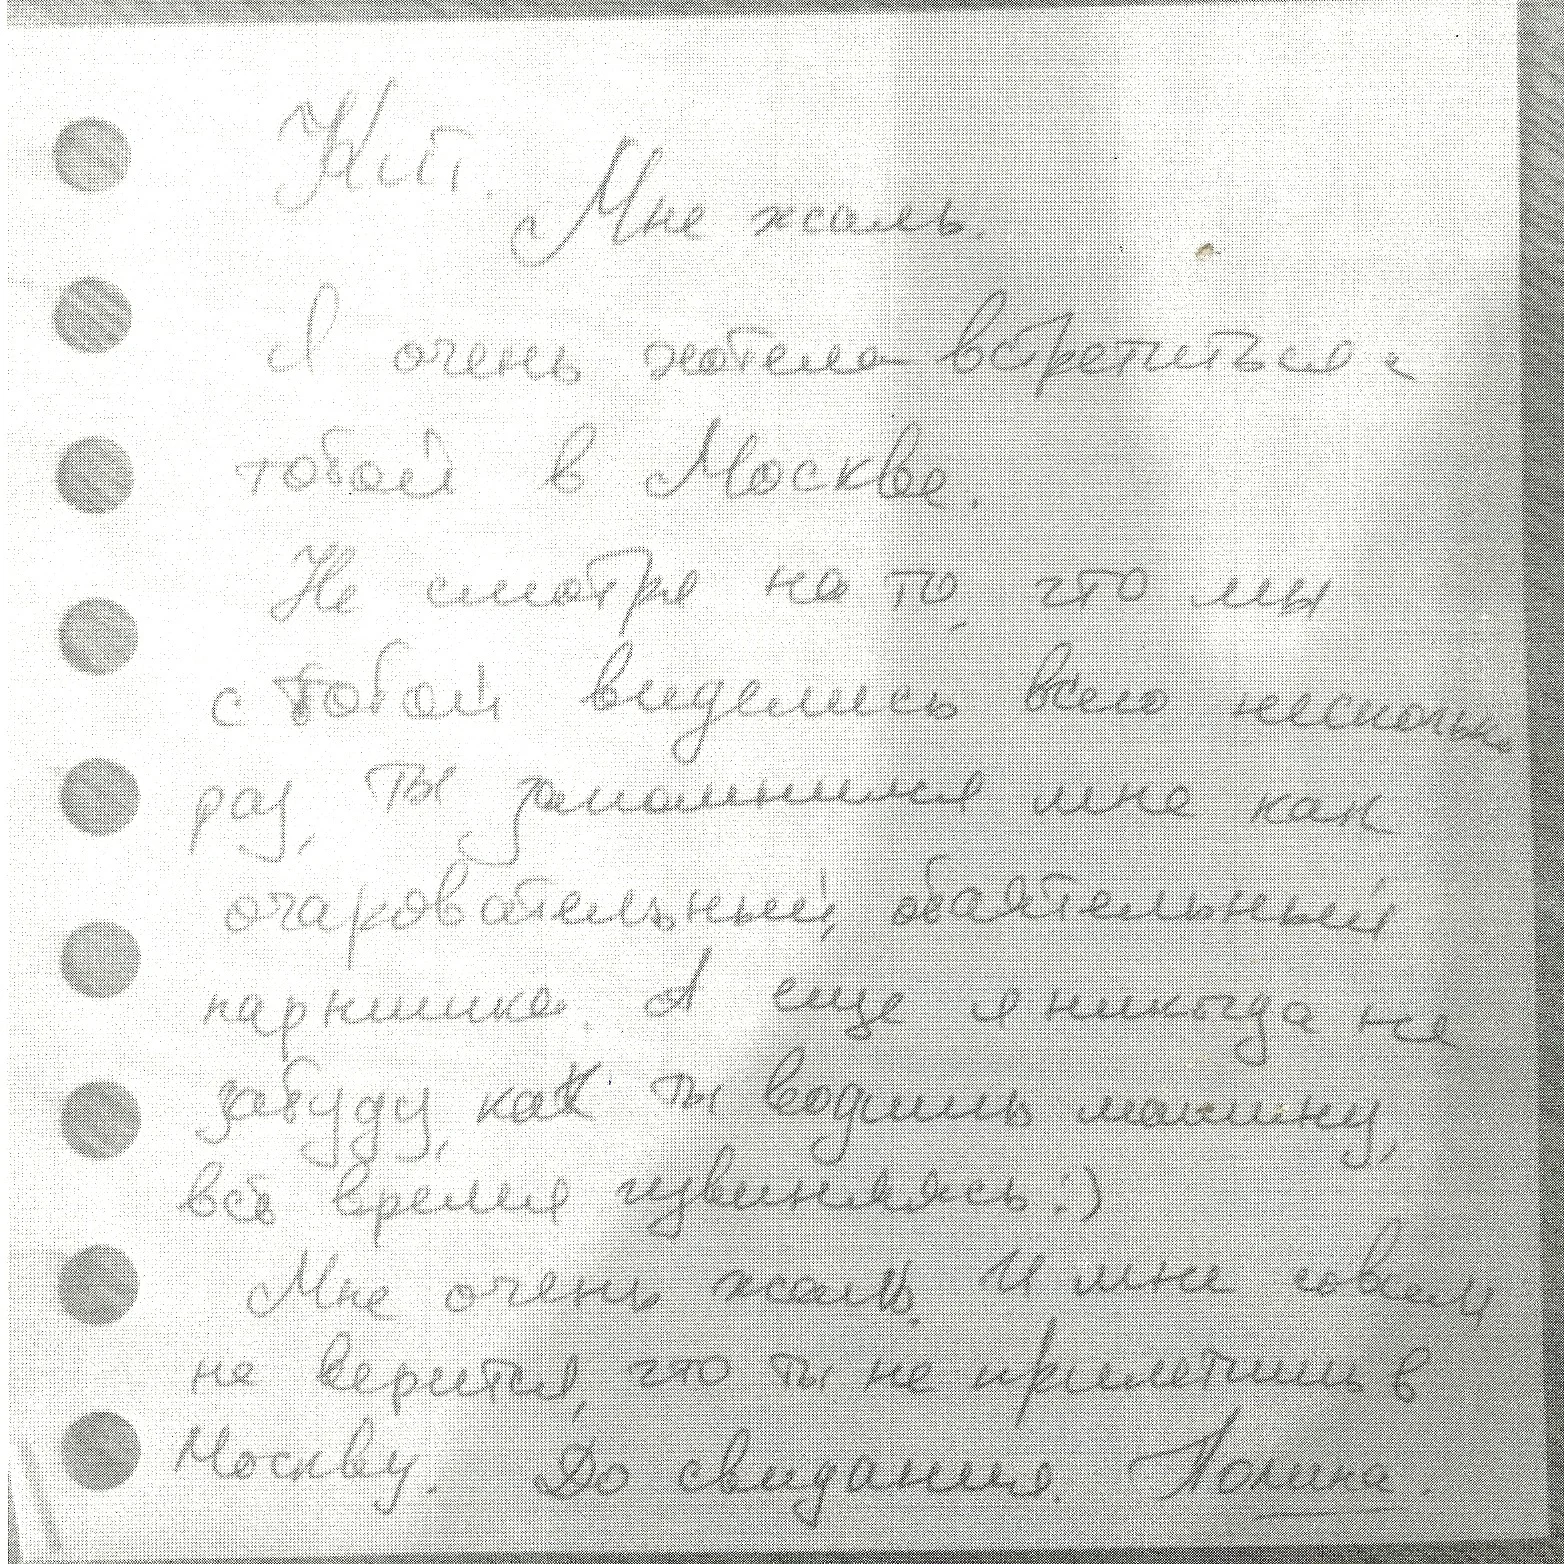 Кит.
Мне жаль.
Я очень хотела встретиться с
тобой в Москве.
Не смотря на то, что мы
с тобой виделись всего несколько
раз, ты запомнился мне как
очаровательный, обаятельный
парнишка. А еще я никогда не
забуду, как ты водишь машину,
всё время извиняясь :)
Мне очень жаль. И мне совсем
не верится, что ты не прилетишь в
Москву. До свидания. Полина